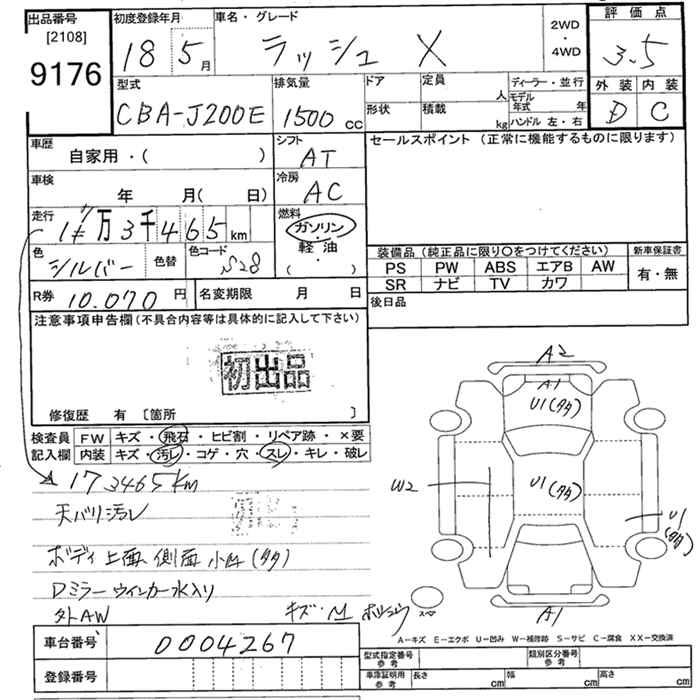 出品番号
[2108]
9176
初度登録年月
18 5月
車名・グレード
ラッシュ X
2WD
・
4WD
評価点
3.5
外装 内装
D C
型式
CBA-J200E
排気量
1500 cc
ドア
形状
定員 人
積載 kg
ディーラー・並行
モデル年式 年
ハンドル 左・右
車歴
自家用・( )
シフト
AT
セールスポイント (正常に機能するものに限ります)
車検
年 月( 日)
冷房
AC
走行
万 3千465 km
燃料
ガソリン
・
軽油
( )
色
シルバー
色替
色コード
S28
装備品 (純正品に限り○をつけてください)
新車保証書
PS PW ABS エアB AW
有・無
SR ナビ TV カワ
R券 10.070 円
名変期限 月 日
後日品
注意事項申告欄 (不具合内容等は具体的に記入して下さい)
初出品
修復歴 有 [箇所 ]
検査員 FW キズ・飛石・ヒビ割・リペア跡・×要
記入欄 内装 キズ・汚レ・コゲ・穴・スレ・キレ・破レ
173465km
天バリ汚レ
ボディ上面側面小凹(多)
Dミラーウインカー水入り
外AW キズ・
A2
A1
U1(多)
W2
U1(多)
U1
(多)
A1
A−キズ E−エクボ U−凹み W−補修跡 S−サビ C−腐食 XX−交換済
車台番号 0004267
登録番号
型式指定番号
参考
類別区分番号
参考
車庫証明用
参考
長さ cm 幅 cm 高さ cm